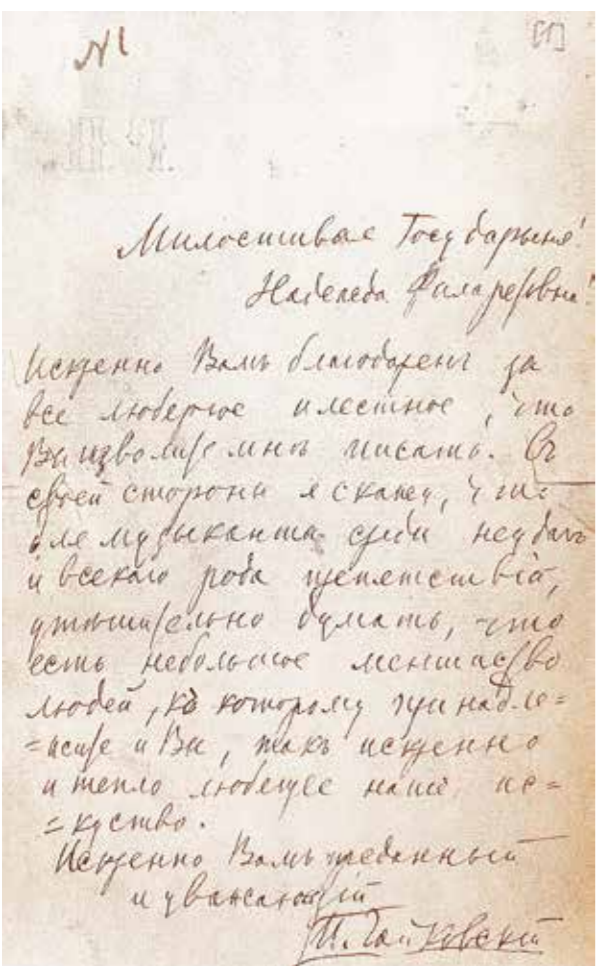 №1
[1]
П. Ч.
Милостивая Государыня!
Надежда Филаретовна!
Искренно Вамъ благодаренъ за
все любезное и лестное, что
Вы изволите мнѣ писать. Съ
своей стороны я скажу, что
для музыканта среди неудачъ
и всякаго рода препятствій,
утѣшительно думать, что
есть небольшое меншинство
людей, къ которому принадле=
=жите и Вы, такъ искренно
и тепло любящее наше ис=
=куство.
Искренно Вамъ преданный
и уважающій
П. Чайковскій